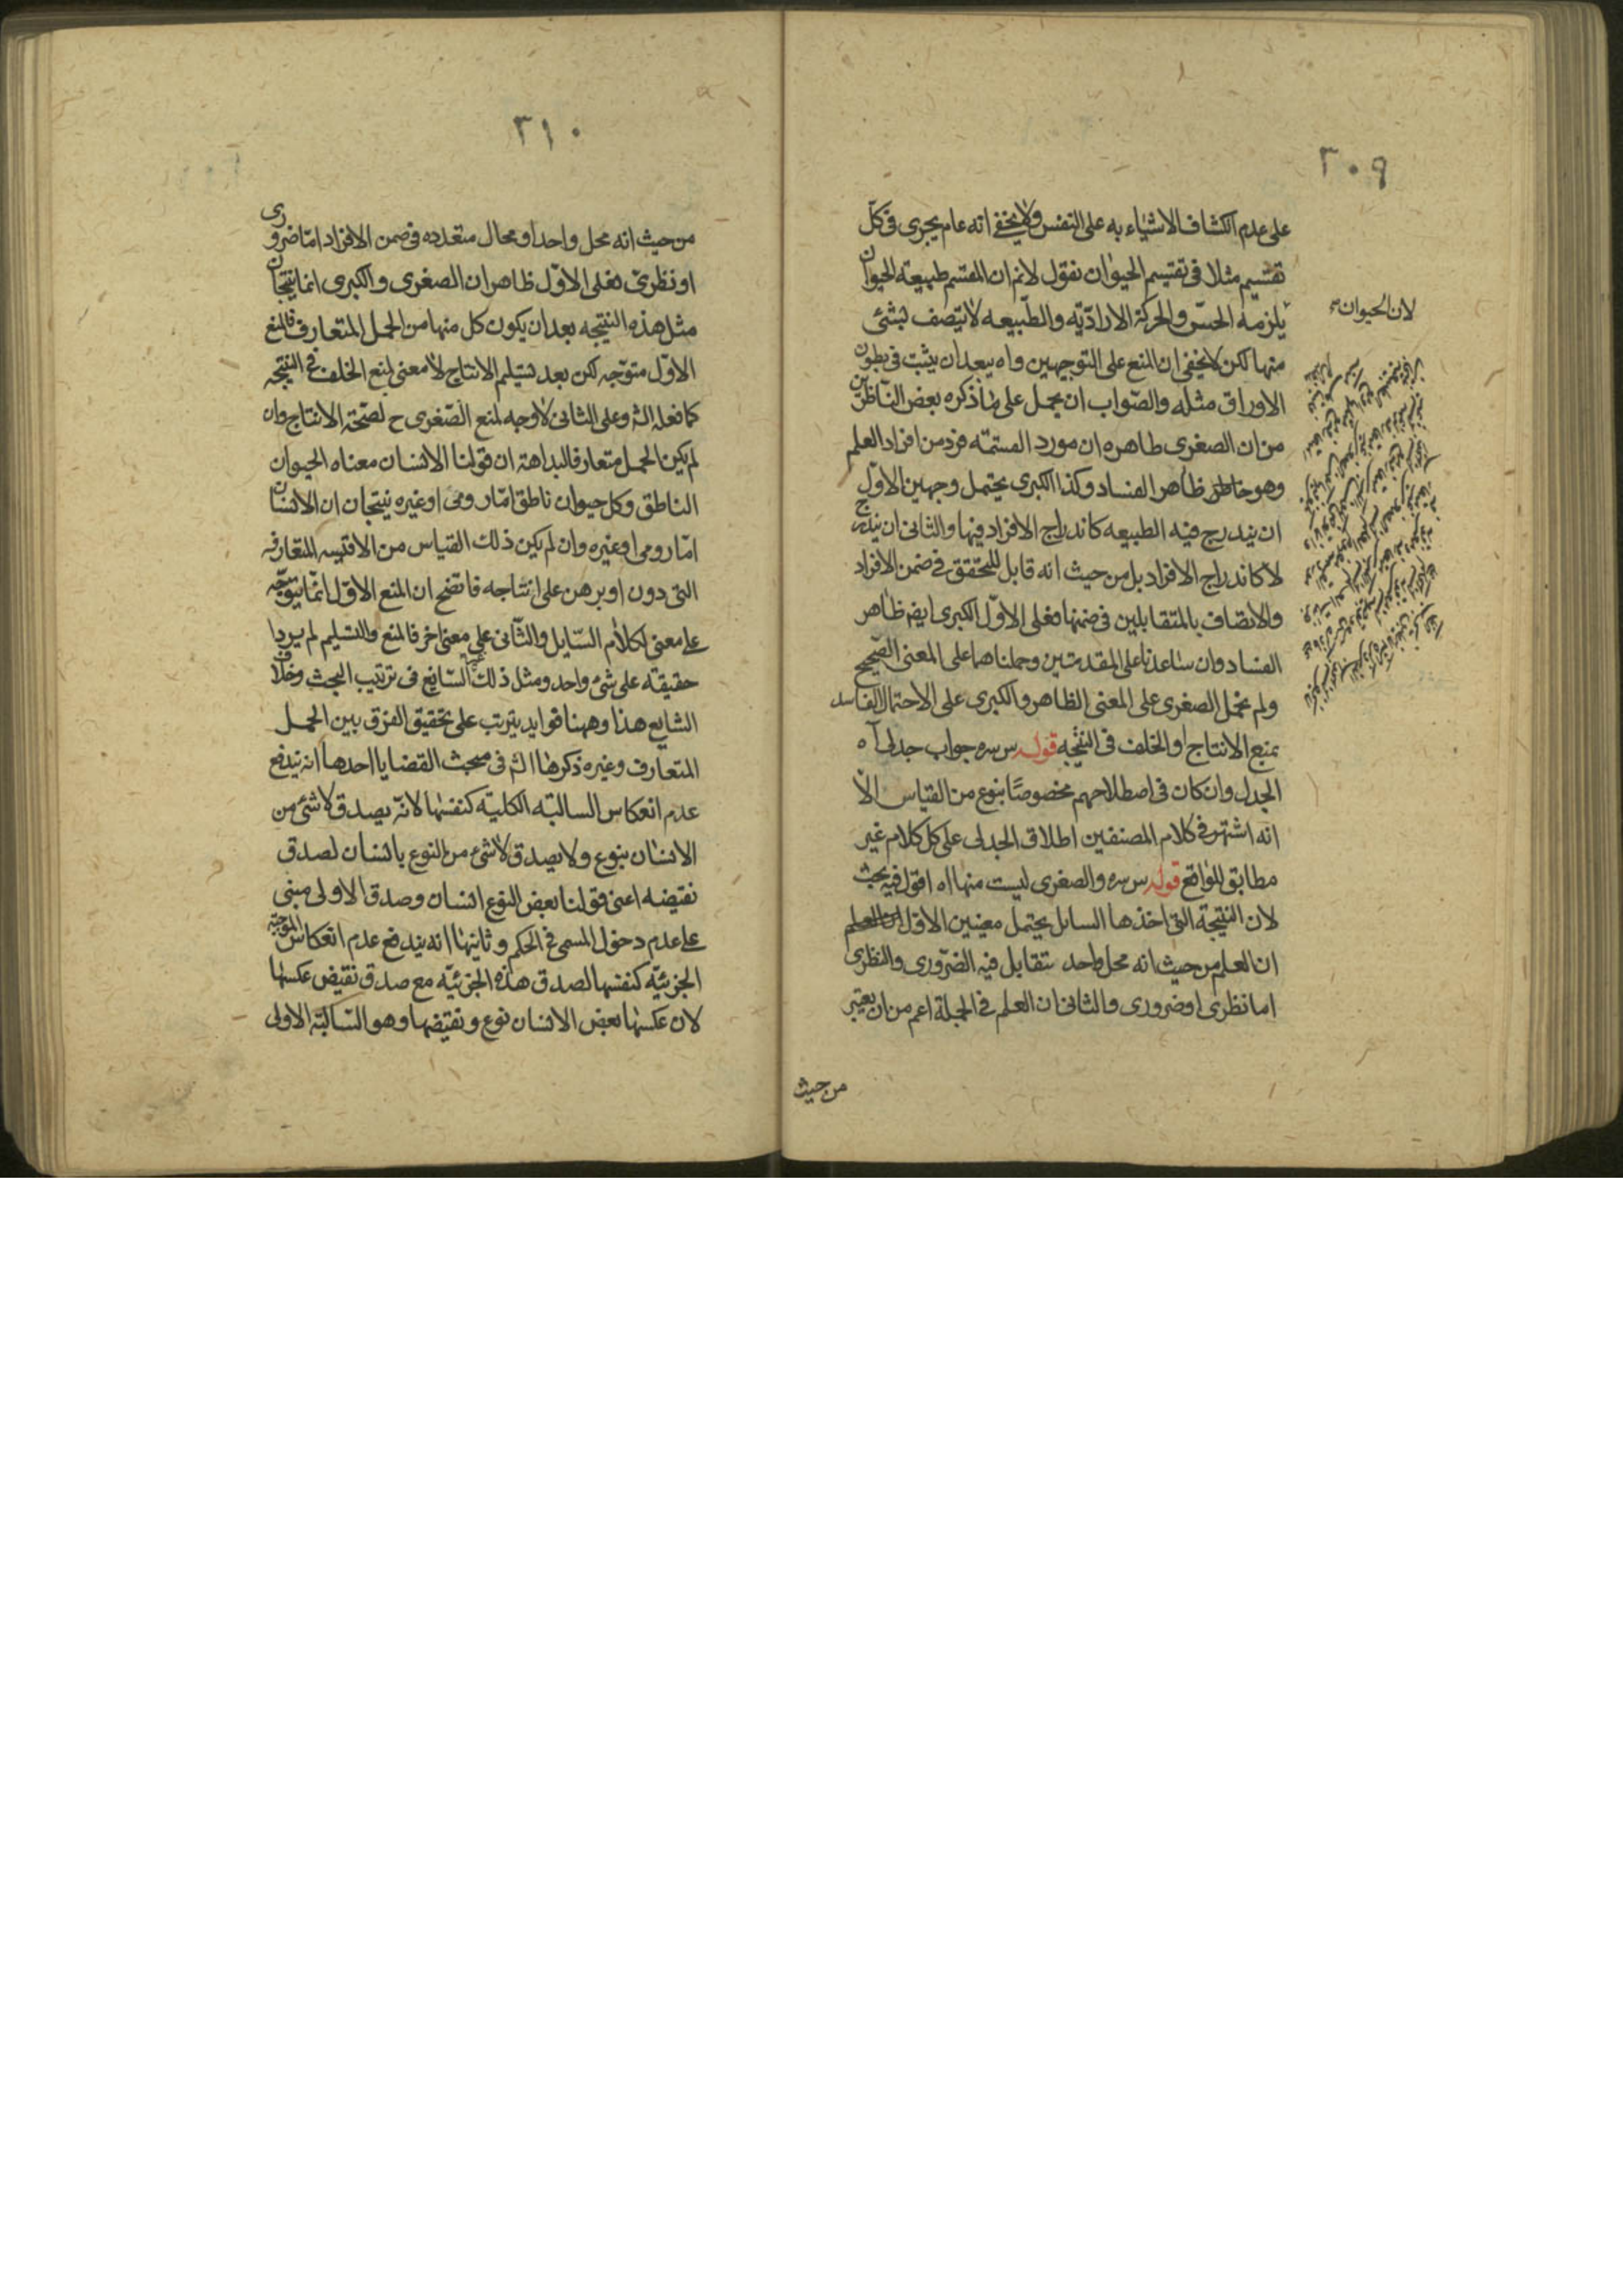 ٣٠٩
على عدم انكشاف الاشياء به على النفس ولا يخفى انه عام يجرى فى كل
تقسيم مثلا فى تقسيم الحيوان نقول لانم ان المقسم طبيعة الحيوان
لان الحيوان
يلزمه الحسّ والحركة الاراديّة والطّبيعه لا يتصف بشئ
منها لكن لا يخفى ان المنع على التوجيهين واه يبعد ان يثبت فى بطون
الاوراق مثله والصّواب ان يحمل على ما ذكره بعض النّاظرين
من ان الصغرى ظاهره ان مورد القسمة فرد من افراد العلم
وهو ظاهر الفساد وكذا الكبرى يحتمل وجهين الاوّل
ان يندرج فيه الطبيعه كاندراج الافراد فيها والثانى ان يندرج
لا كاندراج الافراد بل من حيث انه قابل للتحقق فى ضمن الافراد
والاتصاف بالمتقابلين فى ضمنها فعلى الاوّل الكبرى ايضم ظاهر
الفساد وان ساعدنا على المقدمتين وحملناهما على المعنى الصّحيح
ولم نحمل الصغرى على المعنى الظاهر والكبرى على الاحتمال الفاسد
نمنع الانتاج او الخلف فى النتيجه قوله س سره جواب جدلى آه
الجدل وان كان فى اصطلاحهم مخصوصًا بنوع من القياس الاّ
انه اشتهر فى كلام المصنفين اطلاق الجدلى على كل كلام غير
مطابق للواقع قوله س سره والصغرى ليست منها اه اقول فيه بحث
لان النتيجة التى اخذها السائل يحتمل معنيين الاوّل
ان العلم من حيث انه محل واحد يتقابل فيه الضّرورى والنظرى
اما نظرى او ضرورى والثانى ان العلم فى الجملة اعم من ان يعتبر
من حيث
٣١٠
من حيث انه محل واحد او محال متعدده فى ضمن الافراد امّا ضرورى
او نظرىّ فعلى الاوّل ظاهر ان الصغرى والكبرى انما ينتجان
مثل هذه النتيجه بعد ان يكون كل منها من الحمل المتعارف فالمنع
الاوّل متوّجه لكن بعد تسليم الانتاج لا معنى لمنع الخلف فى النتيجه
كما فعله الش وعلى الثانى لا وجه لمنع الصّغرى ح لصحّة الانتاج وان
لم يكن الحمل متعارفا لبداهة ان قولنا الانسان معناه الحيوان
الناطق وكل حيوان ناطق امّا رومى او غيره ينتجان ان الانسان
امّا رومى او غيره وان لم يكن ذلك القياس من الاقيسه المتعارفه
التى دون او برهن على انتاجه فاتضح ان المنع الاوّل انّما يتوجّه
على معنى لكلام السّايل والثّانى على معنى اخر فالمنع والتسليم لم يردا
حقيقة على شئ واحد ومثل ذلك السّايغ فى ترتيب البحث وخلاف
الشايع هذا وههنا فوايد يترتب على تحقيق الفرق بين الحمل
المتعارف وغيره ذكرها الش فى مبحث القضايا احدها انه يندفع
عدم انعكاس السالبة الكليّة كنفسها لانّه يصدق لا شئ من
الانسان بنوع ولا يصدق لا شئ من النوع بانسان لصدق
نقيضه اعنى قولنا بعض النوع انسان وصدق الاولى مبنى
على عدم دخول المسمى فى الحكم وثانيها انه يندفع عدم انعكاس الموجبة
الجزئيّه كنفسها لصدق هذه الجزئيّه مع صدق نقيض عكسها
لان عكسها بعض الانسان نوع ونقيضها وهو السّالبة الاولى